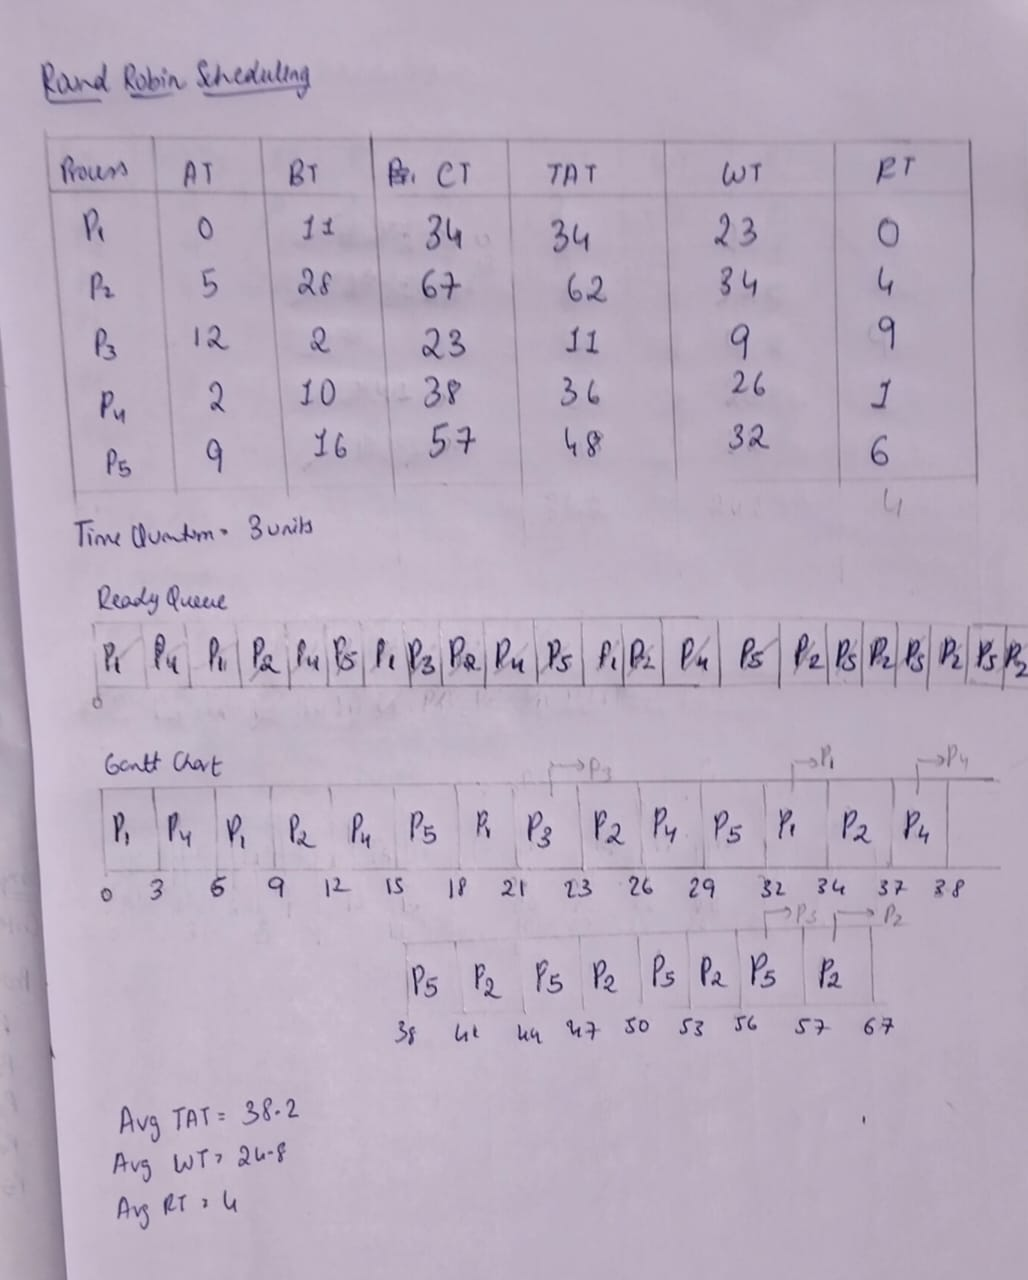 Rand Robin Scheduling
Process AT BT CT TAT WT RT
P1 0 11 34 34 23 0
P2 5 28 67 62 34 4
P3 12 2 23 11 9 9
P4 2 10 38 36 26 1
P5 9 16 57 48 32 6
4
Time Quantum = 3 units
Ready Queue
P1 P4 P1 P2 P4 P5 P1 P3 P2 P4 P5 P1 P2 P4 P5 P2 P5 P2 P5 P2 P5 P2
0
Gantt Chart
→P3 →P1 →P4
P1 P4 P1 P2 P4 P5 P1 P3 P2 P4 P5 P1 P2 P4
0 3 6 9 12 15 18 21 23 26 29 32 34 37 38
→P5 →P2
P5 P2 P5 P2 P5 P2 P5 P2
38 41 44 47 50 53 56 57 67
Avg TAT = 38.2
Avg WT = 24.8
Avg RT = 4